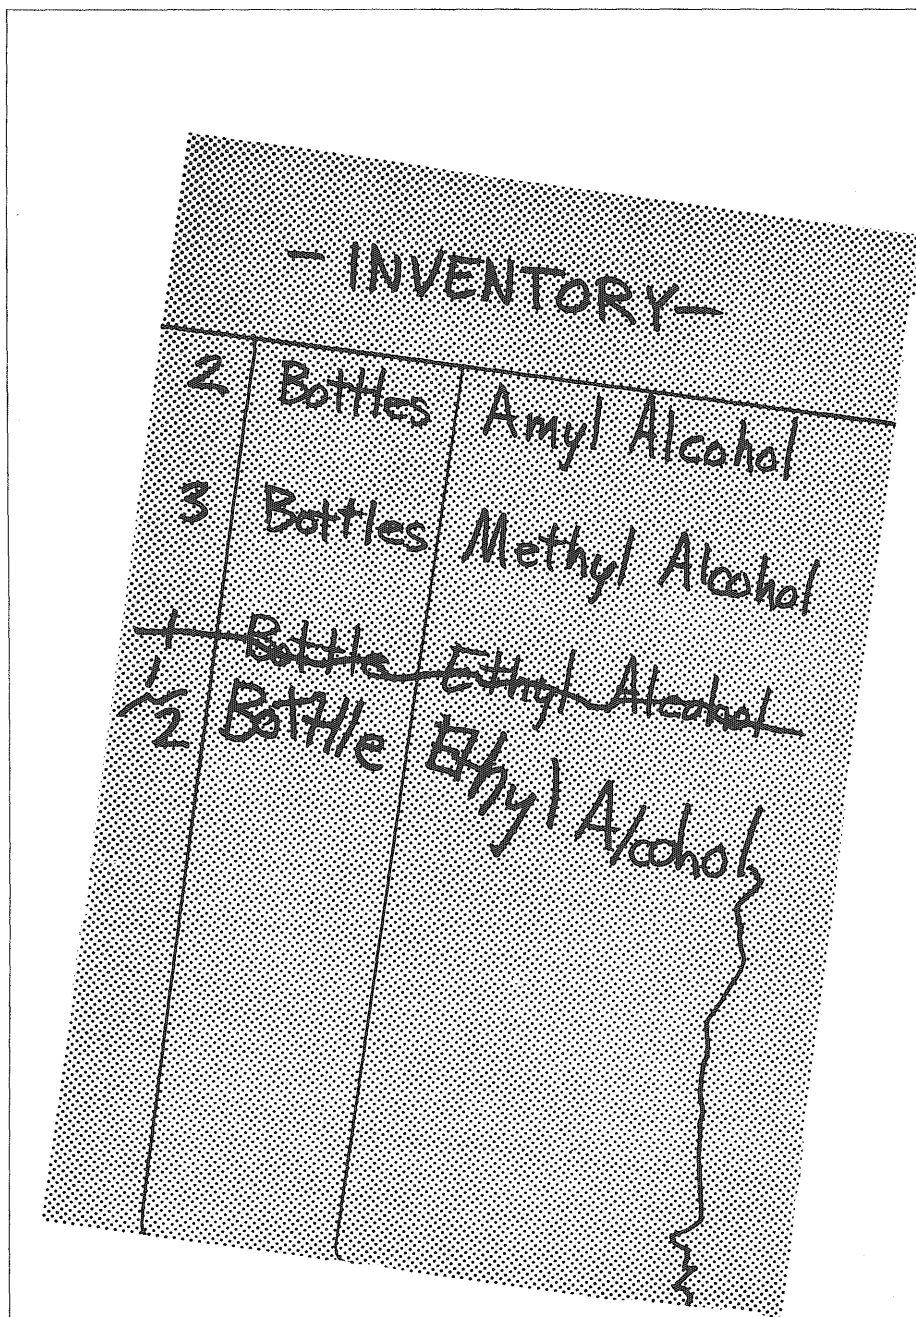 - INVENTORY -
2 Bottles Amyl Alcohol
3 Bottles Methyl Alcohol
1 Bottle Ethyl Alcohol
1/2 Bottle Ethyl Alcohol